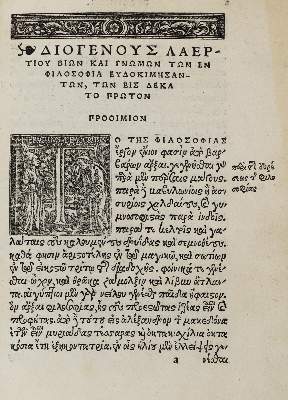 ΔΙΟΓΕΝΟΥΣ ΛΑΕΡ-
ΤΙΟΥ ΒΙΩΝ ΚΑΙ ΓΝΩΜΩΝ ΤΩΝ ΕΝ
ΦΙΛΟΣΟΦΙΑ ΕΥΔΟΚΙΜΗΣΑΝ-
ΤΩΝ, ΤΩΝ ΕΙΣ ΔΕΚΑ
ΤΟ ΠΡΩΤΟΝ
ΠΡΟΟΙΜΙΟΝ
Τ Ο ΤΗΣ ΦΙΛΟΣΟΦΙΑΣ
ἔργον ἔνιοι φασὶν ἀπὸ βαρ-
βάρων ἄρξαι. γεγενῆσθαι γὰρ
παρὰ μὲν πέρσαις μάγους,
παρὰ δὲ βαβυλωνίοις ἢ ἀσ-
συρίοις χαλδαίους, καὶ γυ-
μνοσοφιστὰς παρ' ἰνδοῖς,
παρά τε κελτοῖς καὶ γα-
λάταις τοὺς καλουμένους δρυΐδας καὶ σεμνοθέους,
καθά φησιν ἀριστοτέλης ἐν τῷ μαγικῷ, καὶ σωτίων
ἐν τῷ εἰκοστῷ τρίτῳ τῆς διαδοχῆς. φοίνικά τε γενέ-
σθαι ὦχον, καὶ θρᾷκα ζάμολξιν καὶ λίβυν ἄτλαν-
τα. αἰγύπτιοι μὲν γὰρ νείλου γενέσθαι παῖδα ἥφαιστον,
ὃν ἄρξαι φιλοσοφίας, ἧς τοὺς προεστῶτας ἱερέας εἶναι καὶ
προφήτας. ἀπὸ δὲ τούτου εἰς ἀλέξανδρον τὸν μακεδόνα
ἐτῶν εἶναι μυριάδας τέσσαρας καὶ ὀκτακισχίλια ὀκτα-
κόσια ἔτη ἑξηκοντατρία, ἐν οἷς ἡλίου μὲν ἐκλείψεις γε
a νέσθαι
περὶ τῆς εὑρέ-
σεως τῆς φιλο-
σοφίας